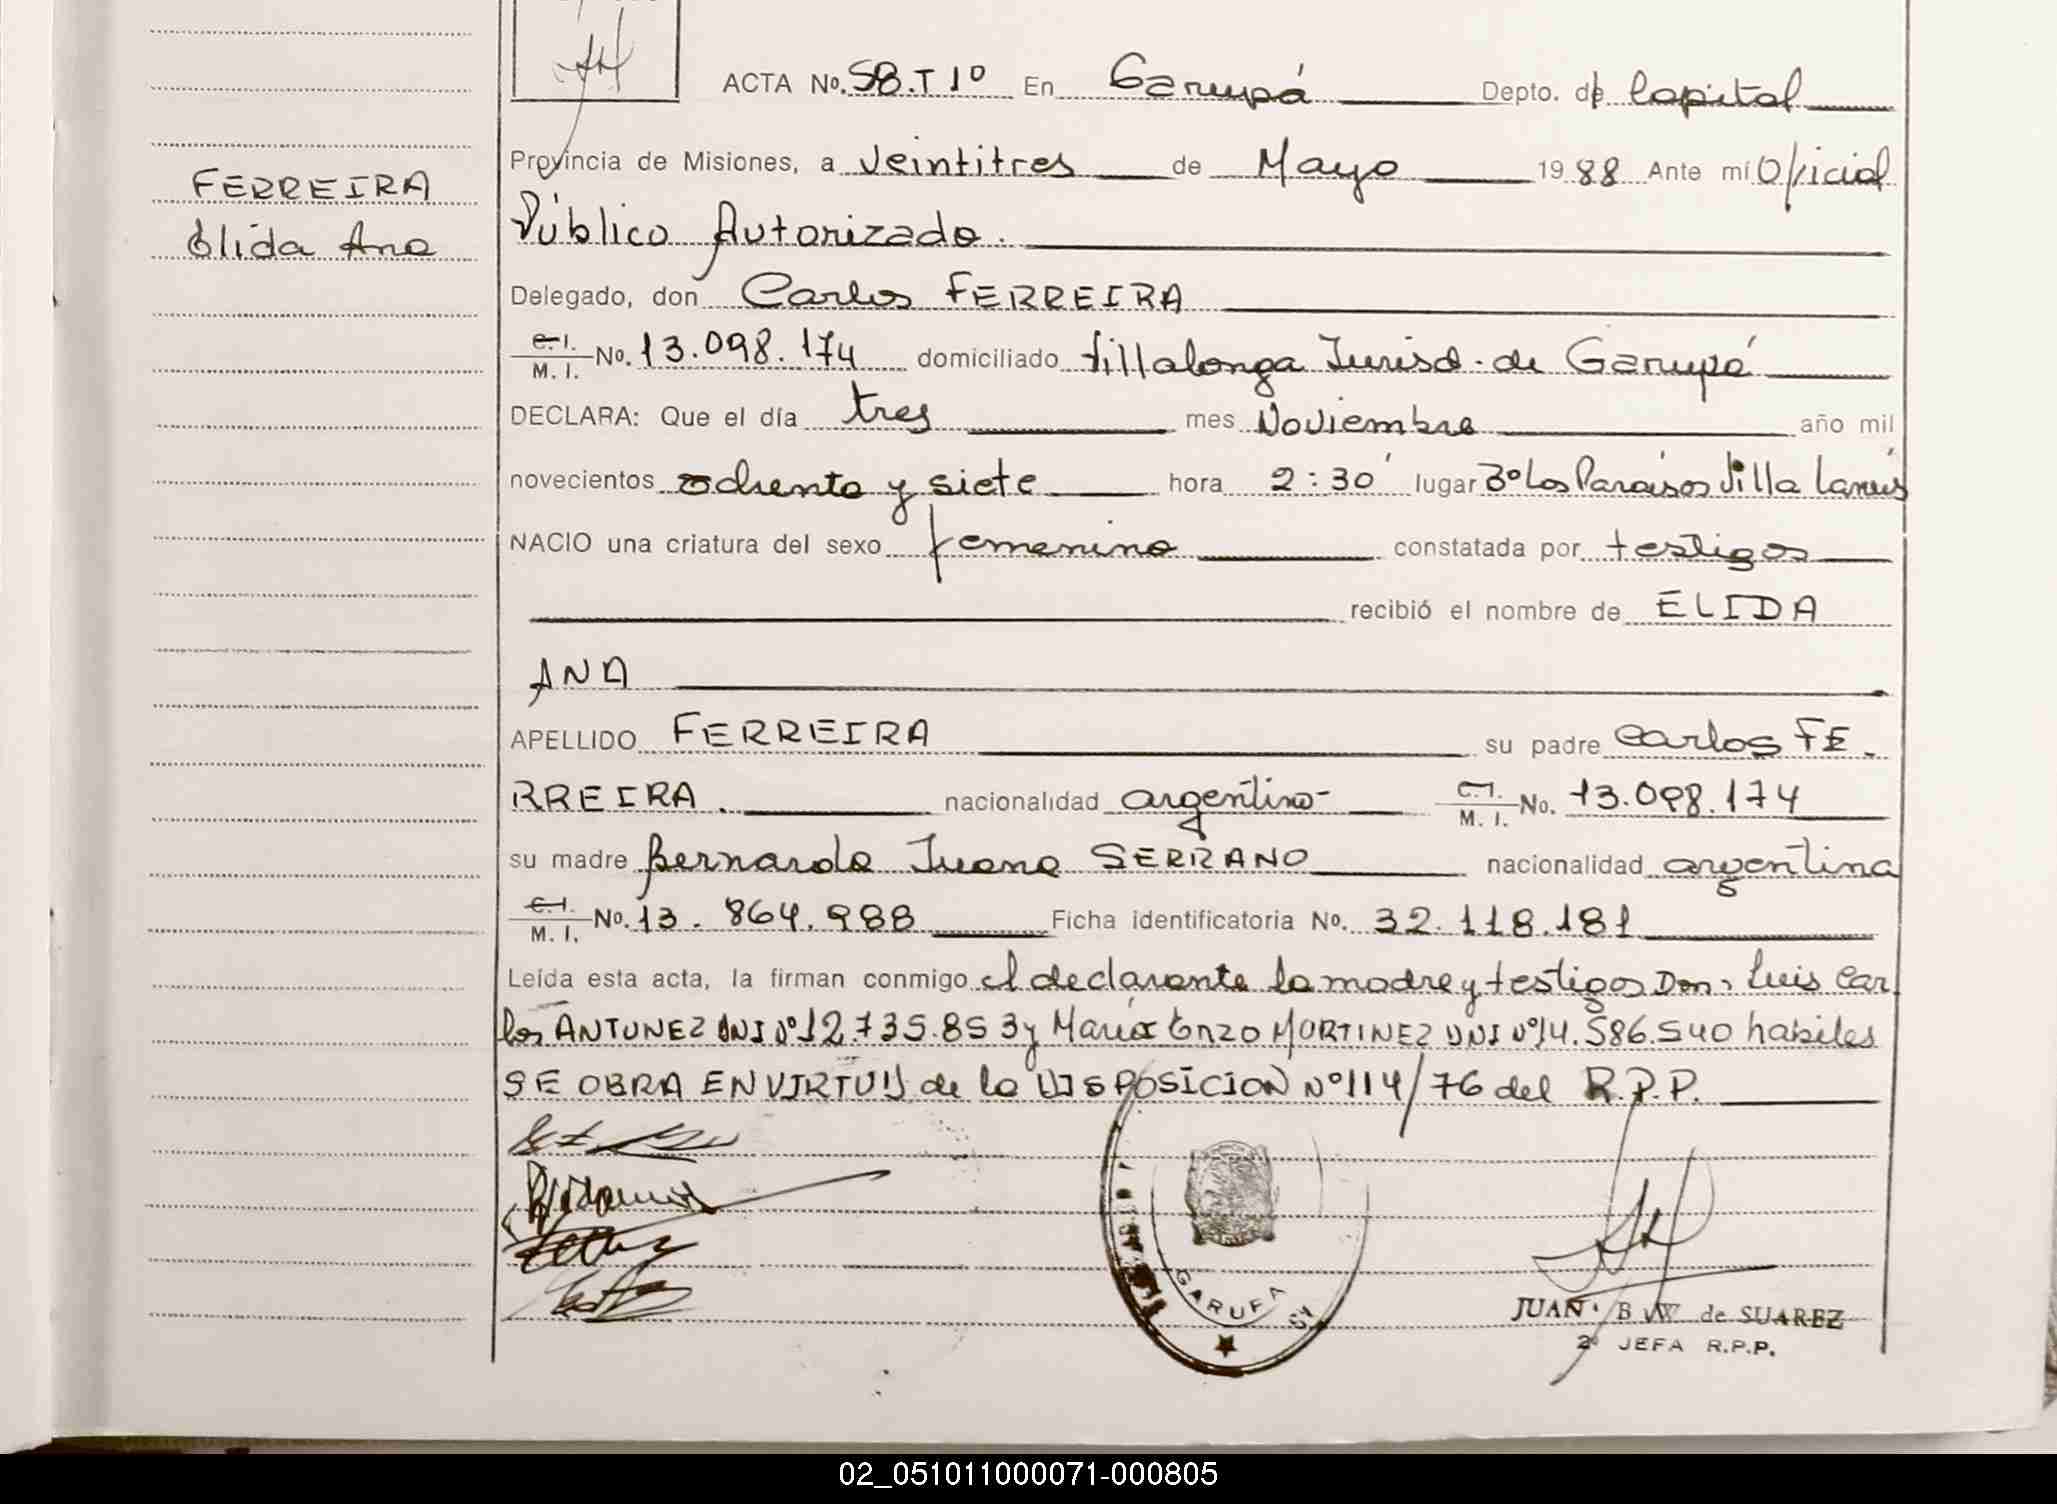 ACTA No. 58.T 1º En Garupá Depto. de Capital
Provincia de Misiones, a veintitres de Mayo 1988 Ante mí Oficial
FERREIRA
Elida Ana
Público Autorizado.
Delegado, don Carlos FERREIRA
C.I. M.I. No. 13.098.174 domiciliado Villalonga Jurisd. de Garupá
DECLARA: Que el día tres mes Noviembre año mil
novecientos ochenta y siete hora 2:30 lugar Bº Los Paraisos Villa Lanús
NACIO una criatura del sexo femenino constatada por testigos
recibió el nombre de ELIDA
ANA
APELLIDO FERREIRA su padre Carlos FE-
RREIRA. nacionalidad argentino- C.I. M.I. No. 13.098.174
su madre Bernarda Juana SERRANO nacionalidad argentina
C.I. M.I. No. 13.864.988 Ficha identificatoria No. 32.118.181
Leída esta acta, la firman conmigo el declarante la madre y testigos Don, Luis Car
los ANTUNEZ DNI Nº 12.735.853 y María Enzo MARTINEZ DNI Nº 14.586.540 habiles
SE OBRA EN VIRTUD de la DISPOSICION Nº 114/76 del R.P.P.
GARUPA
JUANA B W de SUAREZ
2º JEFA R.P.P.
02_051011000071-000805